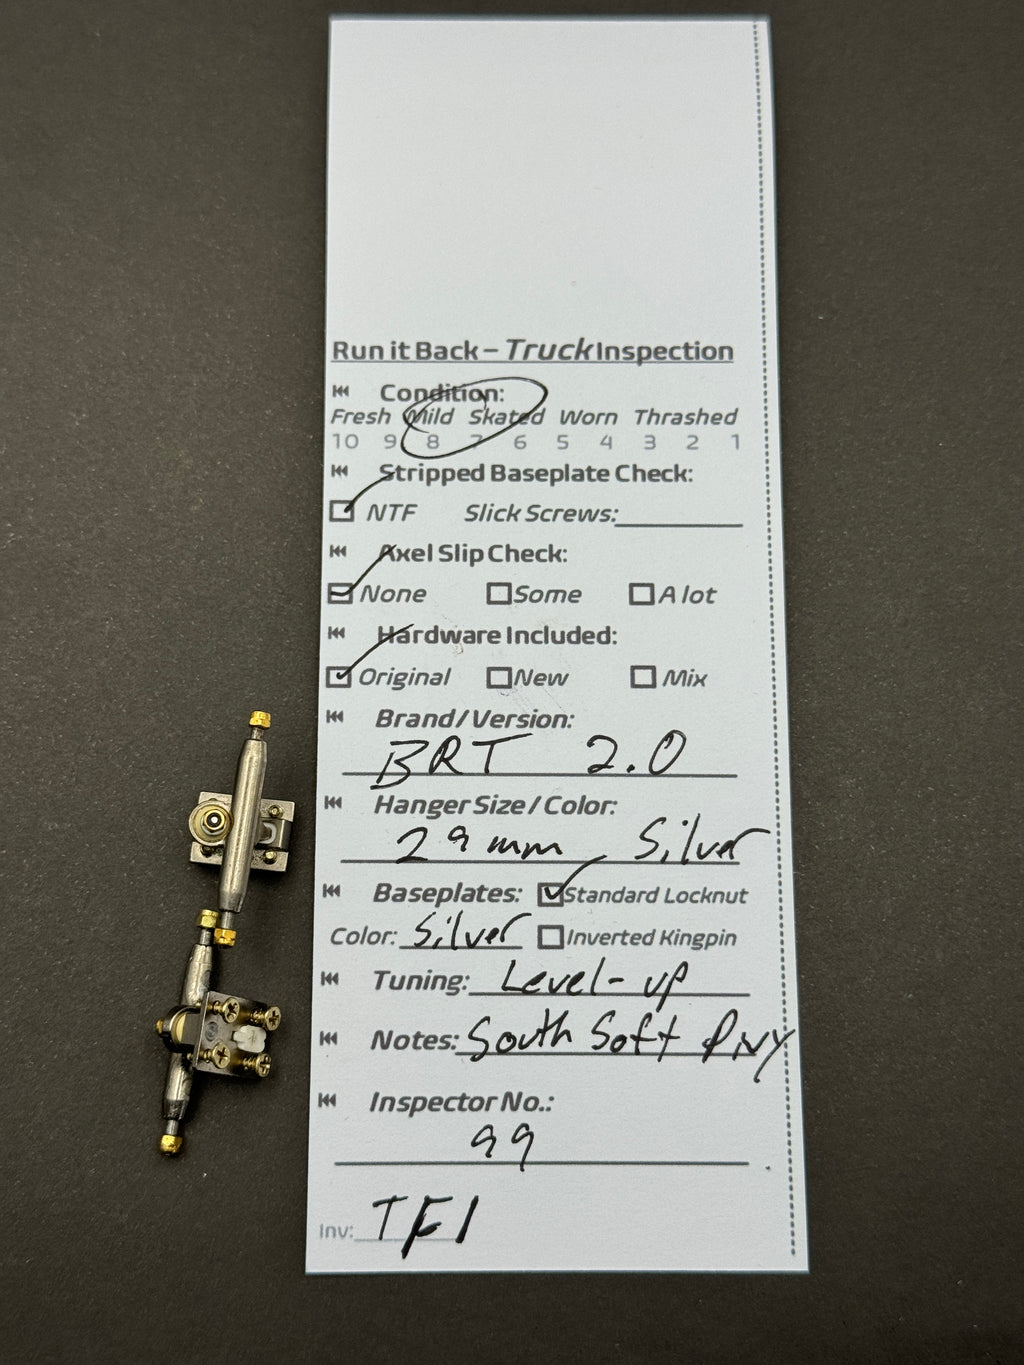 Run it Back – Truck Inspection
Condition:
Fresh Mild Skated Worn Thrashed
10 9 8 7 6 5 4 3 2 1
Stripped Baseplate Check:
NTF Slick Screws:
Axel Slip Check:
None Some A lot
Hardware Included:
Original New Mix
Brand/Version:
BRT 2.0
Hanger Size/Color:
29mm Silver
Baseplates: Standard Locknut
Color: Silver Inverted Kingpin
Tuning: Level-up
Notes: South Soft
Inspector No.:
99
Inv: